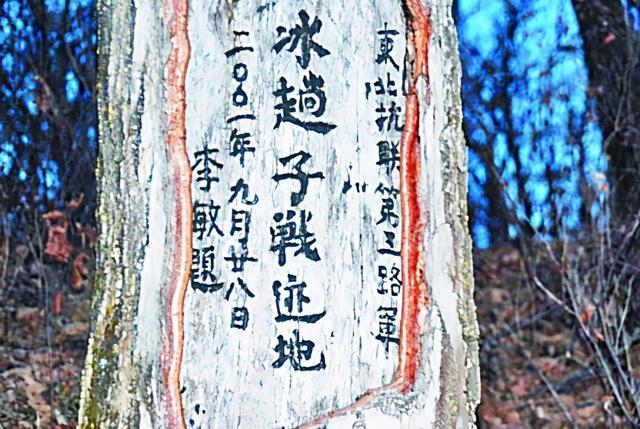 東北抗联第三路軍
冰趟子戦迹地
二〇〇一年九月廿八日
李敏題